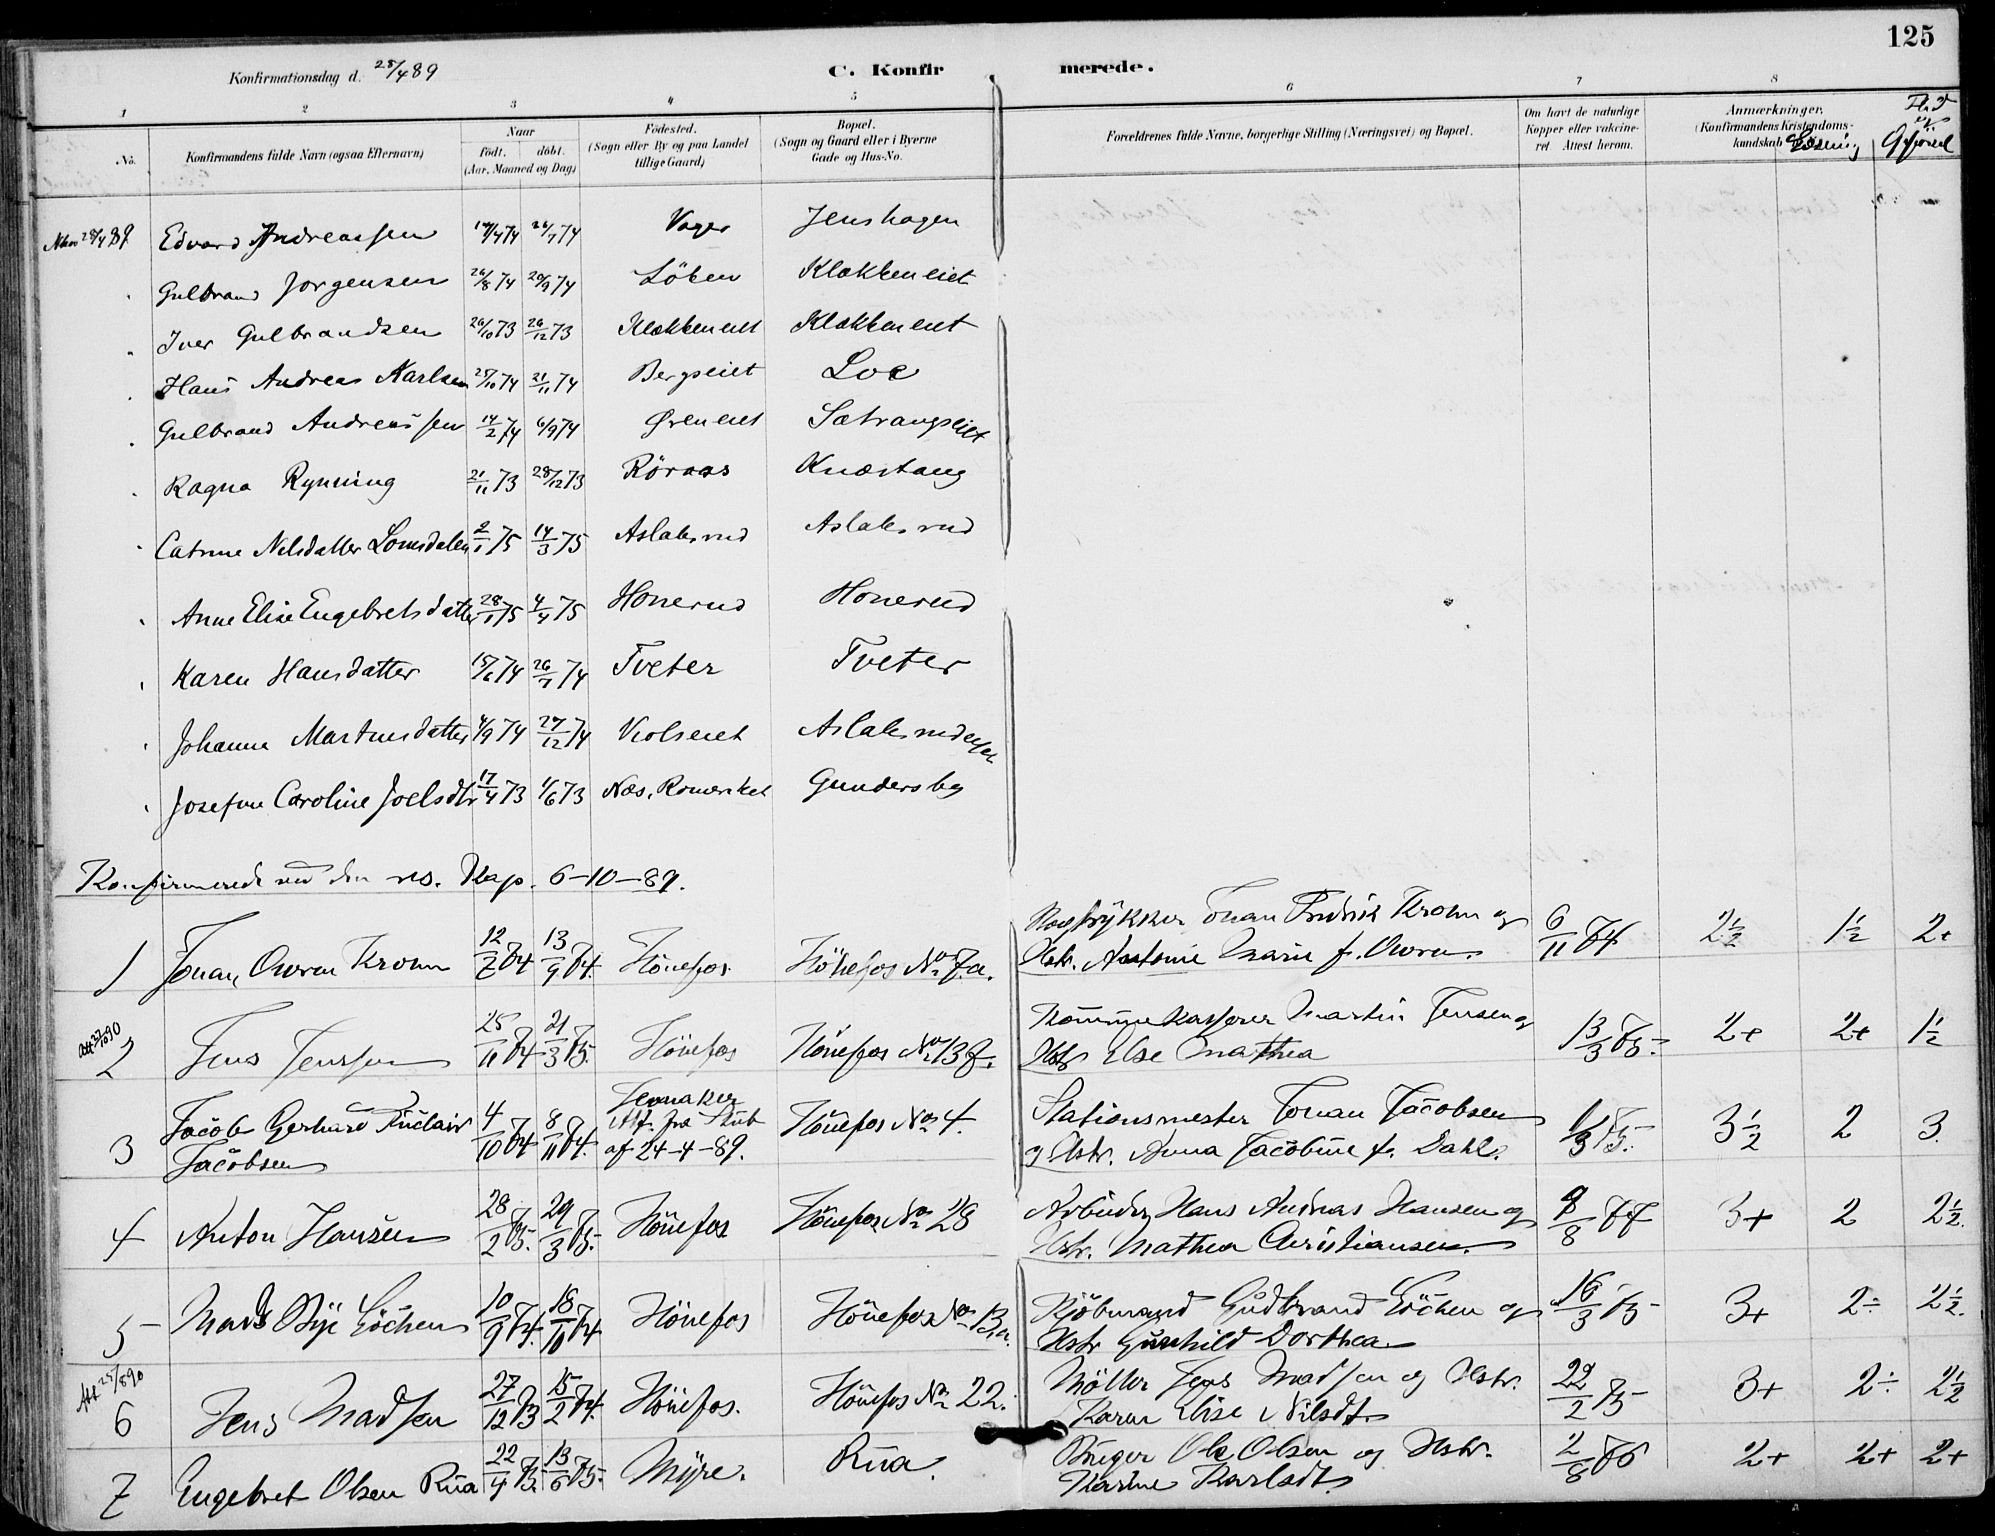 125
Konfirmationsdag d. 28/4 89
C. Konfirmerede.
1 2 3 4 5 6 7 8
No.
Konfirmandens fulde Navn (ogsaa Efternavn)
Naar
født. døbt.
(Aar, Maaned og Dag)
Fødested.
(Sogn eller By og paa Landet
tillige Gaard)
Bopæl.
(Sogn og Gaard eller i Byerne
Gade og Hus-No.
Forældrenes fulde Navne, borgerlige Stilling (Næringsvei) og Bopæl.
Om havt de naturlige
Kopper eller vakcine-
ret. Attest herom.
Anmærkninger.
(Konfirmandens Kristendoms-
kundskab
28/4 89 Edvard Andreassen 24/7 74 Jenshagen
Gulbrand Jørgensen 26/8 74 20/9 74 Löken Klækken eiet
Iver Gulbrandsen 26/10 73 26/12 73 Klækken eiet Klækken eiet
Hans Andreas Karlsen 25/10 74 21/11 74 Bergseiet Loe
Gulbrand Andreassen 14/2 74 6/9 74 Øren eiet Sætrangseiet
Ragna Rynning 21/11 73 28/12 73 Röraas Knæstang
Catrine Nilsdatter Lomsdalen 2/1 75 14/3 75 Aslaksrud Aslaksrud
Anne Elise Engebretsdatter 28/1 75 4/4 75 Honerud Honerud
Karen Hansdatter 15/6 74 26/7 74 Tveter Tveter
Johanne Martinsdatter 4/9 74 27/12 74 Aslaksrudeiet
Josefine Caroline Joelsdtr 17/4 73 1/6 73 Næs, Romeriket Gundersby
Konfirmerede ved den res. Kap. 6-10-89.
1 Johan Owren Krohn 12/7 74 13/9 74. Hönefos Hönefos No 7.a. Bogtrykker Johan Fredrik Krohn og
Hstr. Antonie Marie f. Owren. 6/11 74 2½ 1½ 2+
2 Jens Jenssen 25/11 74 21/3 75. Hönefos Hönefos No 137. Kommunekasserer Martin Jensen og
Hstr Else Mathea 13/3 75. 2+ 2+ 1½
3 Jacob Gerhard Sinclair
Jacobsen 4/10 74 8/11 74. Att. fra
af 24-4-89. Hönefos No 4. Stationsmester Johan Jacobsen
og Hstr. Anna Jacobine f. Dahl. 1/3 75. 3½ 2 3.
4 Anton Hansen 28/2 75. 29/3 75. Hönefos Hönefos No 28 Arbeider Hans Andreas Hansen og
Hstr. Mathea Christiansen. 9/8 77 3+ 2 2½.
5 Mads Bye Göthen 10/9 74. 18/10 74 Hönefos Hönefos No 13a. Kjöbmand Gudbrand Göthen og
Hstr Gunhild Dorthea. 16/3 75 3+ 2÷ 2½.
Att 25/8 90
6 Jens Madsen 27/12 73 15/2 74. Hönefos. Hönefos No 22. Möller Jens Madsen og Hstr.
Karen Elise Nilsdt. 22/2 75 3+ 2÷ 2½
7 Engebret Olsen Rua 22/4 75. 13/6 75. Myre. Rua. Bruger Ole Olsen og Hstr.
Karine Karlsdt. 2/8 76 2+ 2+ 2+